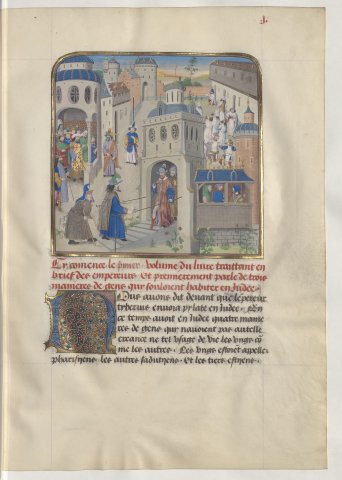 j.
Cy comence le pmier volume du livre traittant en
brief des empereurs Et premierement parle de trois
manieres de gens qui souloient habiter en Judee
Nous avons dit devant que lempereur
tyberius envoia pylate en Judee En
ce temps avoit en Judee quatre manie
res de gens qui navoient pas autelle
creance ne tel usage de vie les ungs cõ
me les autres Les ungs estoiēt appelle
pharisiens les autres saduciens Et les tiers essiens